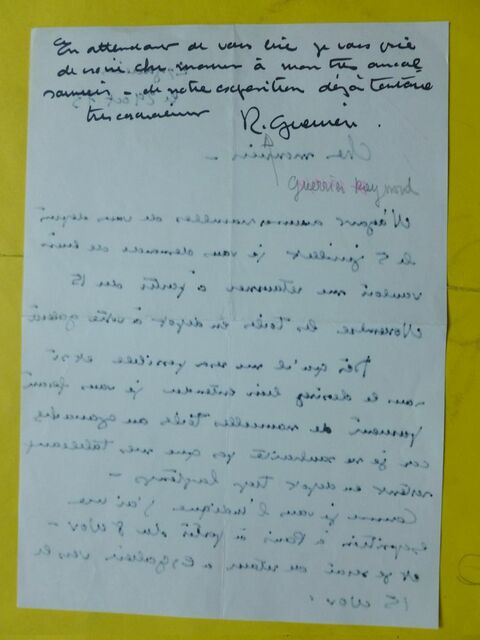 En attendant de vous lire je vous prie
de croire cher monsieur à mon très amical
souvenir – de notre exposition déjà lointaine
très cordialement
R. Guerrier.
Cher monsieur –
Guerrier Raymond
N'ayant aucunes nouvelles de vous depuis
le 5 juillet je vous demande de bien
vouloir me retourner à partir du 15
Novembre les toiles en dépôt à votre galerie
Dès qu'il me sera possible et si
vous le désirez bien entendu je vous ferai
de nouvelles toiles au
car je ne souhaite pas que mes tableaux
restent en dépôt trop longtemps –
Comme je vous l'indique j'ai une
exposition à Paris à partir du 8 Nov –
et je serai de retour à Eygalières vers le
15 Nov.